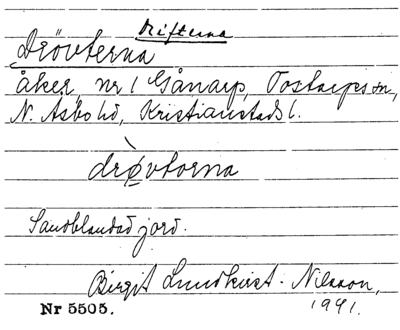 Drifterna
Drövterna
åker, nr 1 Gånarp, Tostarps sn,
N. Åsbo hd, Kristianstads l.
drø̀vtorna
Sandblandad jord.
Birgit Lundkvist-Nilsson,
Nr 5505. 1941.